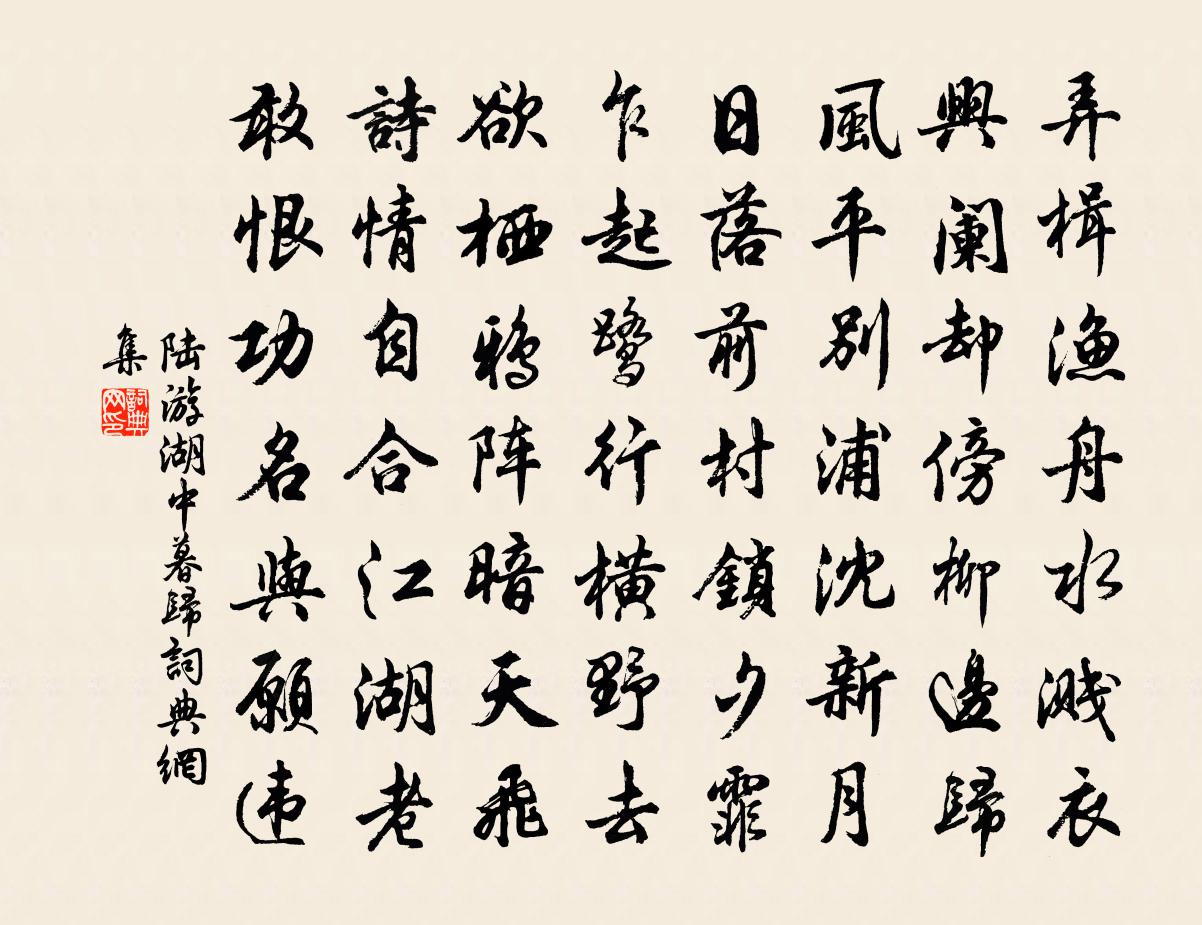 弄楫漁舟水濺衣
興闌却傍柳邊歸
風平别浦沈新月
日落前村鎖夕霏
乍起鹭行横野去
欲栖鸦阵暗天飛
詩情自合江湖老
敢恨功名與願违
陆游湖中暮歸詞典網
集
詞典
网印